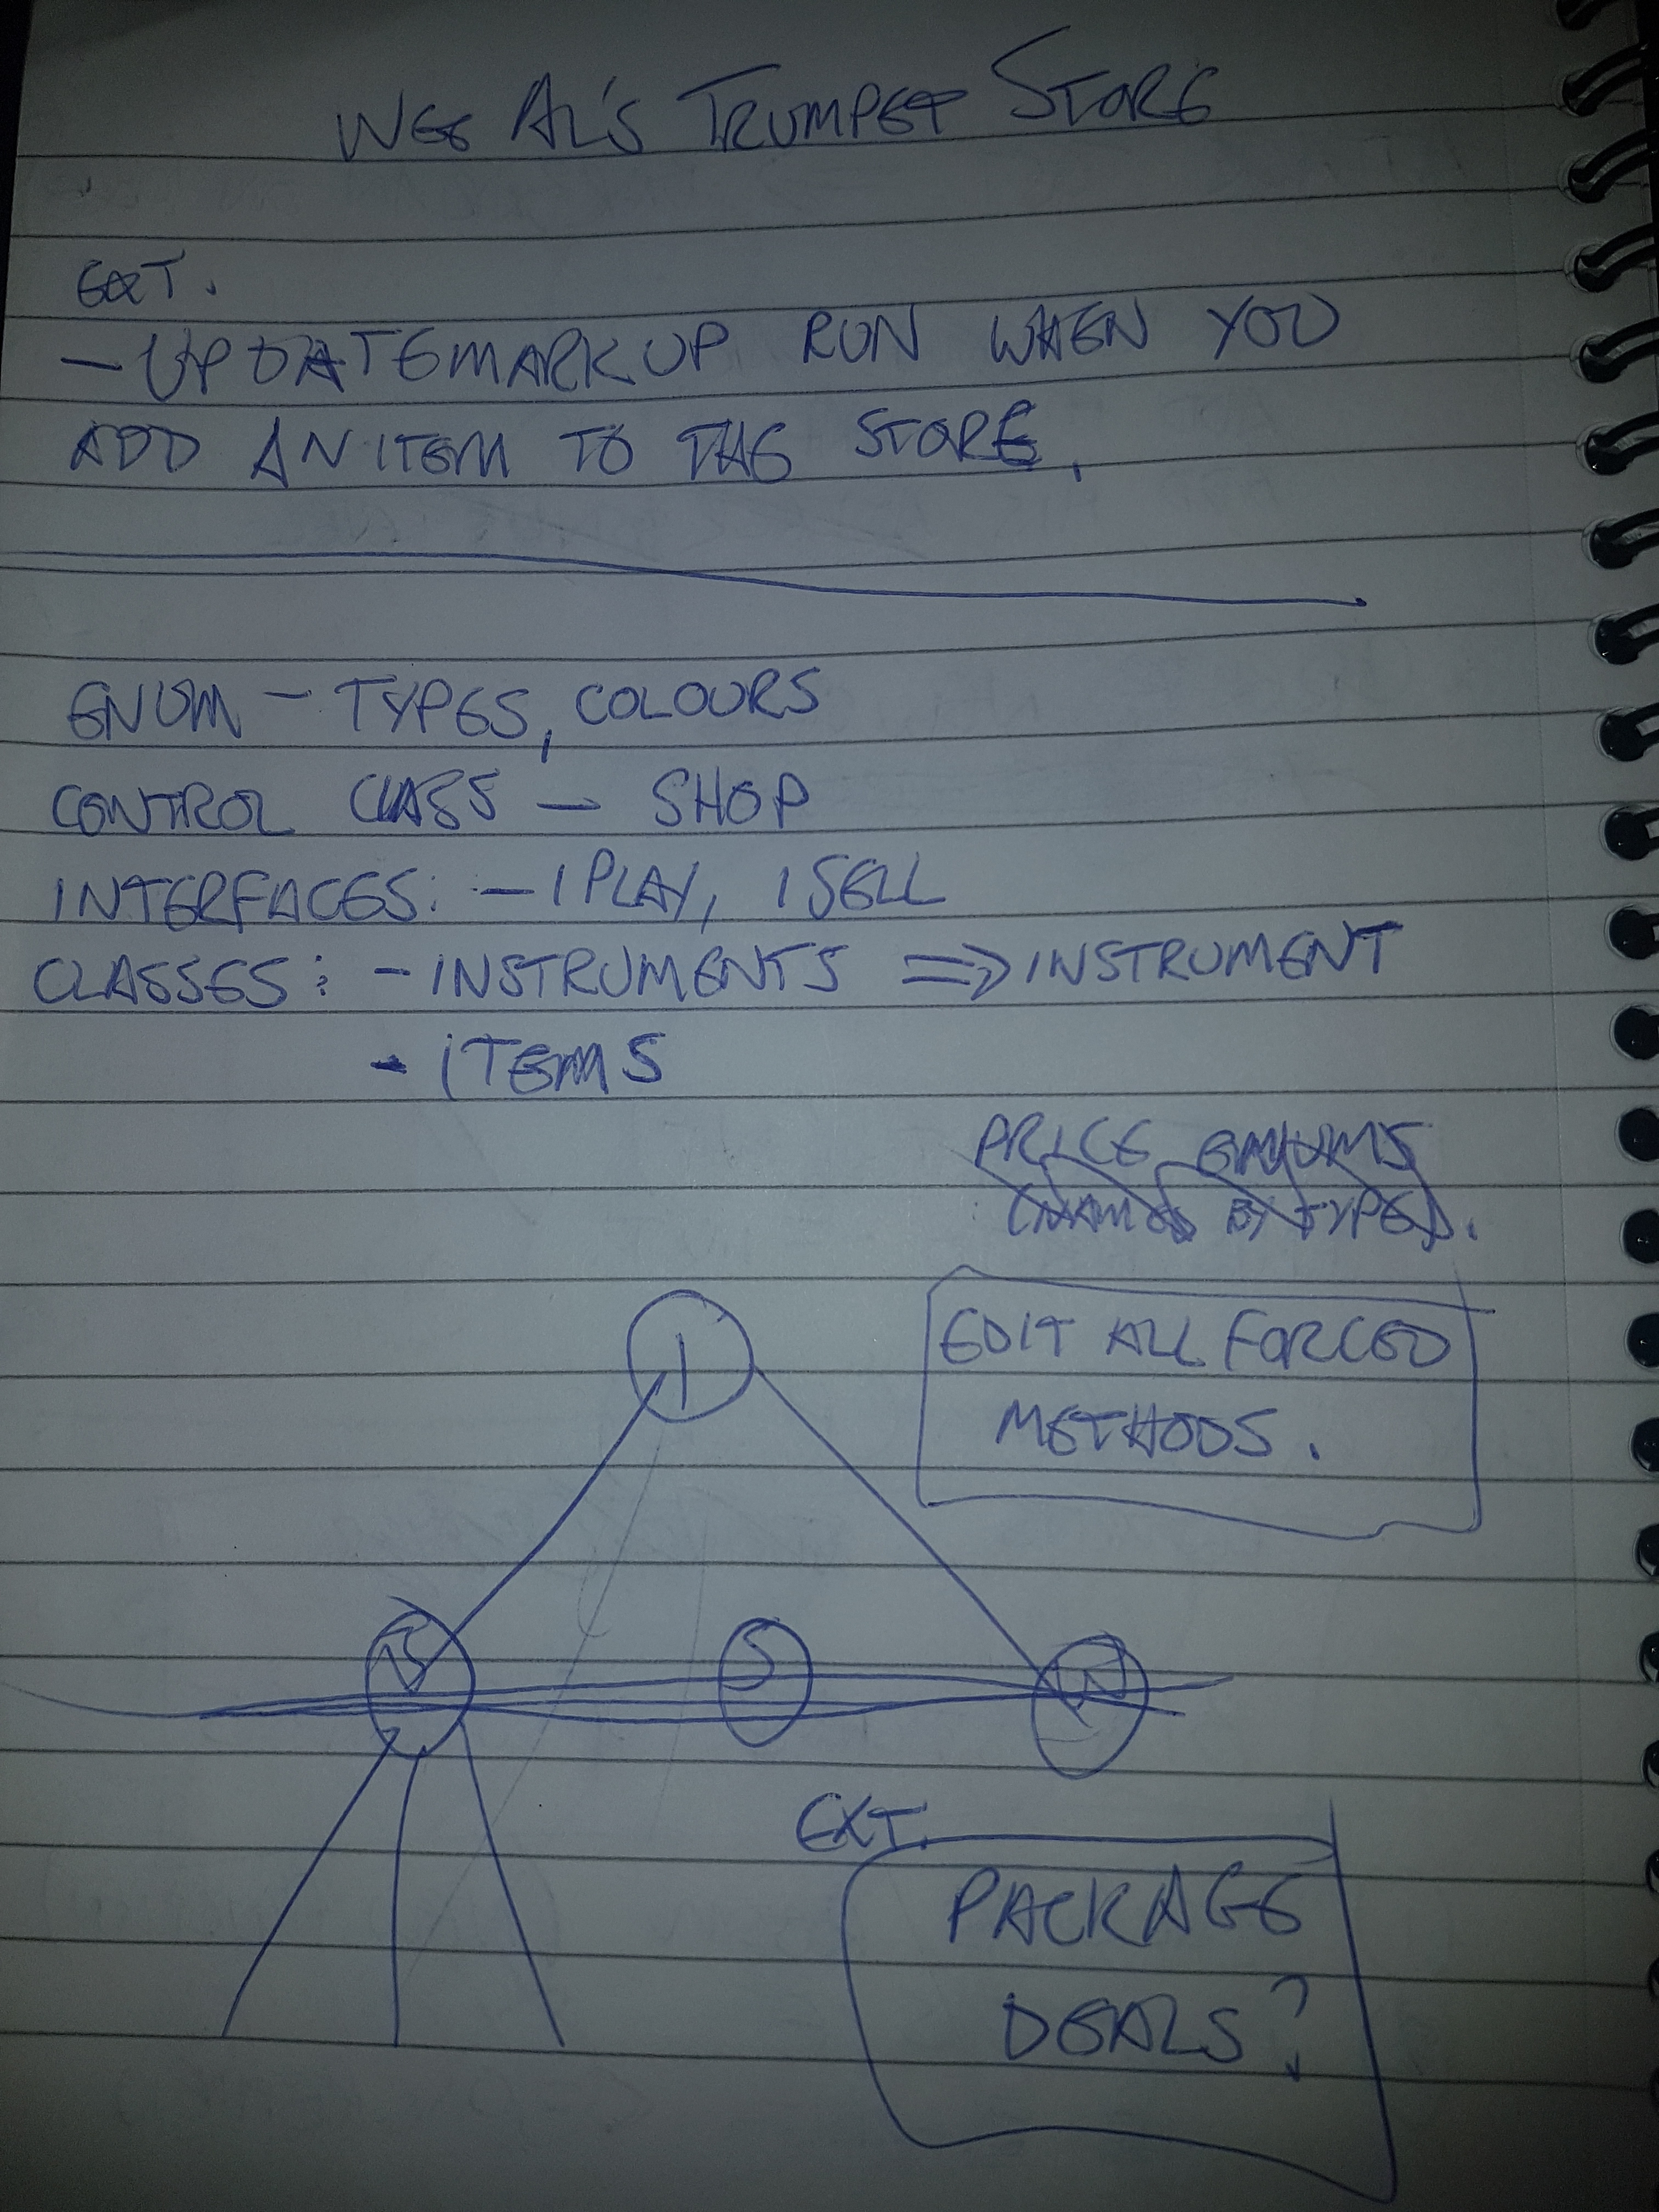 WEE AL'S TRUMPET STORE
EXT.
- UPDATEMARKUP RUN WHEN YOU
ADD AN ITEM TO THE STORE.
ENUM - TYPES, COLOURS
CONTROL CLASS - SHOP
INTERFACES: - IPLAY, ISELL
CLASSES: - INSTRUMENTS => INSTRUMENT
- ITEMS
PRICE ENUMS
BY TYPE).
EDIT ALL FORCED
METHODS.
I
S
W
EXT.
PACKAGE
DEALS?